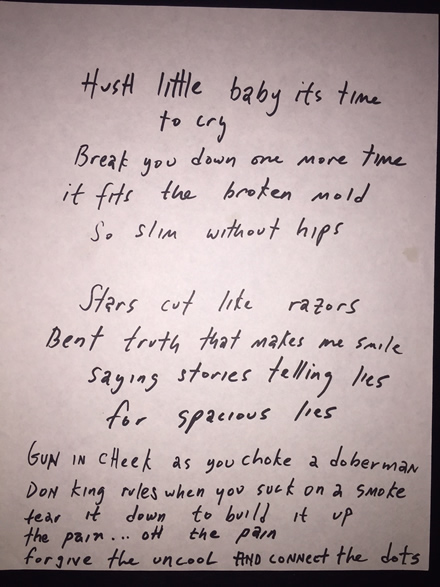 Hush little baby its time
to cry
Break you down one more time
it fits the broken mold
So slim without hips
Stars cut like razors
Bent truth that makes me smile
saying stories telling lies
for spacious lies
GUN IN CHeek as you choke a doberman
DON King rules when you suck on a smoke
tear it down to build it up
the pain... oh the pain
forgive the uncool AND CONNECT the dots